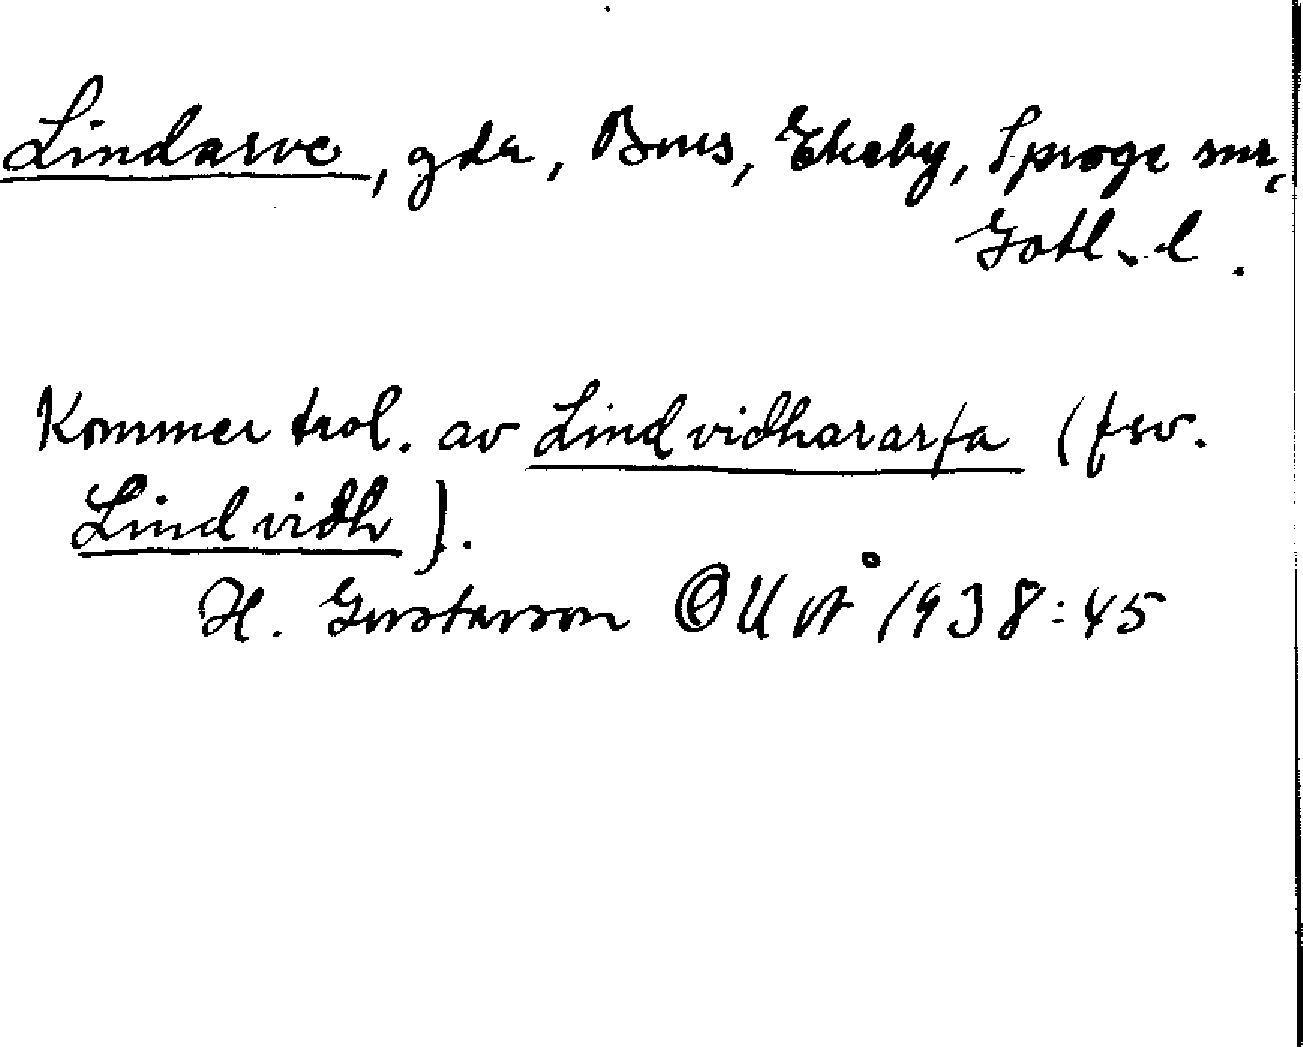 Lindarve, gdr, Burs, Ekeby, Sproge snr,
Gotl. l.
Kommer trol. av Lindvidhararfa (fsv.
Lindvidh).
H. Gustavson OUÅ 1938:45